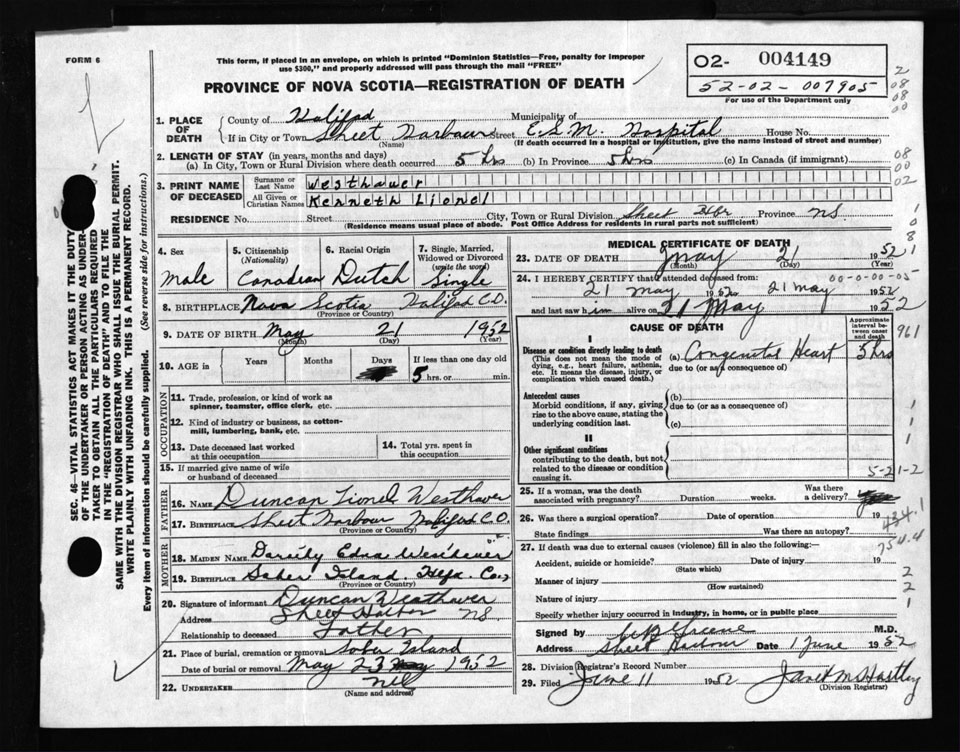 FORM 6
This form, if placed in an envelope, on which is printed "Dominion Statistics—Free, penalty for improper
use $300," and properly addressed will pass through the mail "FREE"
02- 004149
52-02-007905
For use of the Department only
PROVINCE OF NOVA SCOTIA—REGISTRATION OF DEATH
SEC. 46—VITAL STATISTICS ACT MAKES IT THE DUTY
OF THE UNDERTAKER OR PERSON ACTING AS UNDER-
TAKER TO OBTAIN ALL THE PARTICULARS REQUIRED
IN THE "REGISTRATION OF DEATH" AND TO FILE THE
SAME WITH THE DIVISION REGISTRAR WHO SHALL ISSUE THE BURIAL PERMIT.
WRITE PLAINLY WITH UNFADING INK. THIS IS A PERMANENT RECORD.
Every item of information should be carefully supplied. (See reverse side for instructions.)
1. PLACE OF DEATH
County of Halifad Municipality of
If in City or Town Sheet Harbour Street E.S.M. Hospital House No.
(Name) (If death occurred in a hospital or institution, give the name instead of street and number)
2. LENGTH OF STAY (in years, months and days)
(a) In City, Town or Rural Division where death occurred 5 hrs (b) In Province 5 hrs (c) In Canada (if immigrant)
3. PRINT NAME OF DECEASED
Surname or Last Name Westhaver
All Given or Christian Names Kenneth Lionel
RESIDENCE No. Street City, Town or Rural Division Sheet Hbr Province NS.
(Residence means usual place of abode. Post Office Address for residents in rural parts not sufficient)
4. Sex Male
5. Citizenship (Nationality) Canadian
6. Racial Origin Dutch
7. Single, Married, Widowed or Divorced (write the word) Single
8. BIRTHPLACE Nova Scotia Halifad C.O.
(Province or Country)
9. DATE OF BIRTH May 21 1952
(Month) (Day) (Year)
10. AGE in Years Months Days If less than one day old
5 hrs. or min.
OCCUPATION
11. Trade, profession, or kind of work as
spinner, teamster, office clerk, etc.
12. Kind of industry or business, as cotton-
mill, lumbering, bank, etc.
13. Date deceased last worked
at this occupation
14. Total yrs. spent in
this occupation
15. If married give name of wife
or husband of deceased
FATHER
16. NAME Duncan Lionel Westhaver
17. BIRTHPLACE Sheet Harbour Halifad C.O.
(Province or Country)
MOTHER
18. MAIDEN NAME Edna
19. BIRTHPLACE Sober Island. Hfx. Co.
(Province or Country)
20. Signature of informant Duncan Westhaver
Address Sheet Harbor NS
Relationship to deceased Father
21. Place of burial, cremation or removal Sober Island
Date of burial or removal May 23 1952
22. UNDERTAKER Nil
(Name and address)
MEDICAL CERTIFICATE OF DEATH
23. DATE OF DEATH May 21 1952
(Month) (Day) (Year)
24. I HEREBY CERTIFY that I attended deceased from: 00-0-00-05
21 May 1952 to 21 May 1952
and last saw him alive on 21 May 1952
CAUSE OF DEATH
Approximate interval between onset and death
961
I
Disease or condition directly leading to death
(This does not mean the mode of
dying, e.g., heart failure, asthenia,
etc. It means the disease, injury, or
complication which caused death.)
(a) Congenital Heart 5 hrs
due to (or as a consequence of)
Antecedent causes
Morbid conditions, if any, giving
rise to the above cause, stating the
underlying condition last.
(b)
due to (or as a consequence of)
(c)
II
Other significant conditions
contributing to the death, but not
related to the disease or condition
causing it.
5-21-2
25. If a woman, was the death
associated with pregnancy? Duration weeks. Was there
a delivery?
26. Was there a surgical operation? Date of operation 19
State findings Was there an autopsy?
434.1
754.4
27. If death was due to external causes (violence) fill in also the following:—
Accident, suicide or homicide? Date of injury 19
(State which)
Manner of injury
(How sustained)
Nature of injury
Specify whether injury occurred in industry, in home, or in public place
Signed by Greene M.D.
Address Sheet Harbour Date 1 June 1952
28. Division Registrar's Record Number
29. Filed June 11 1952 Janet M Hartley
(Division Registrar)